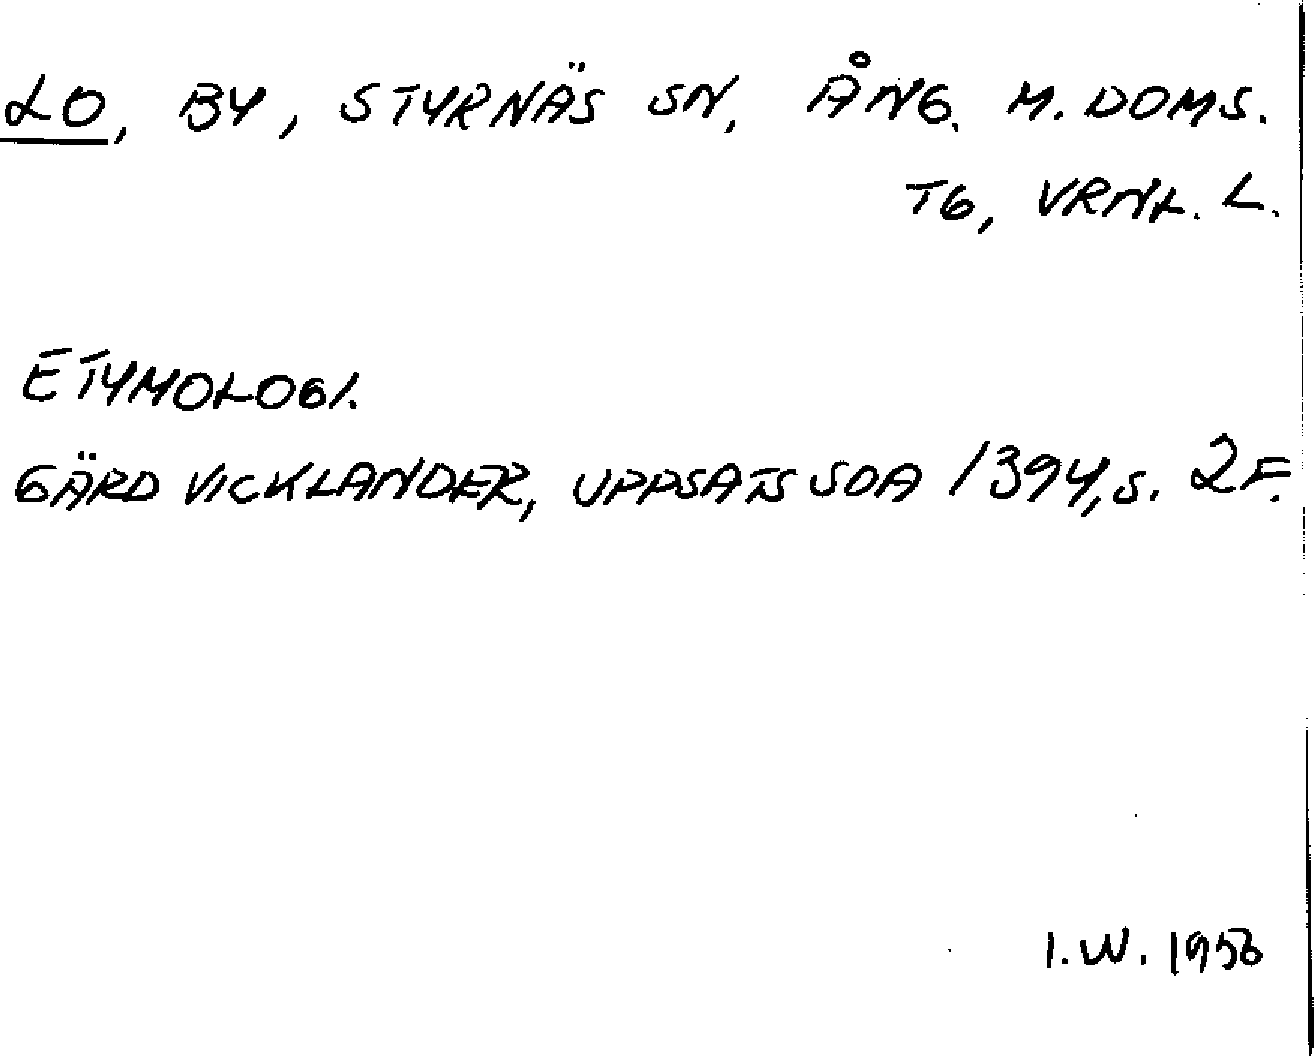 LO, BY, STYRNÄS SN, ÅNG. M. DOMS.
TG, VRNL. L.
ETYMOLOGI.
GÄRD VICKLANDER, UPPSATS SOA 1394, S. 2F.
I.W. 1958